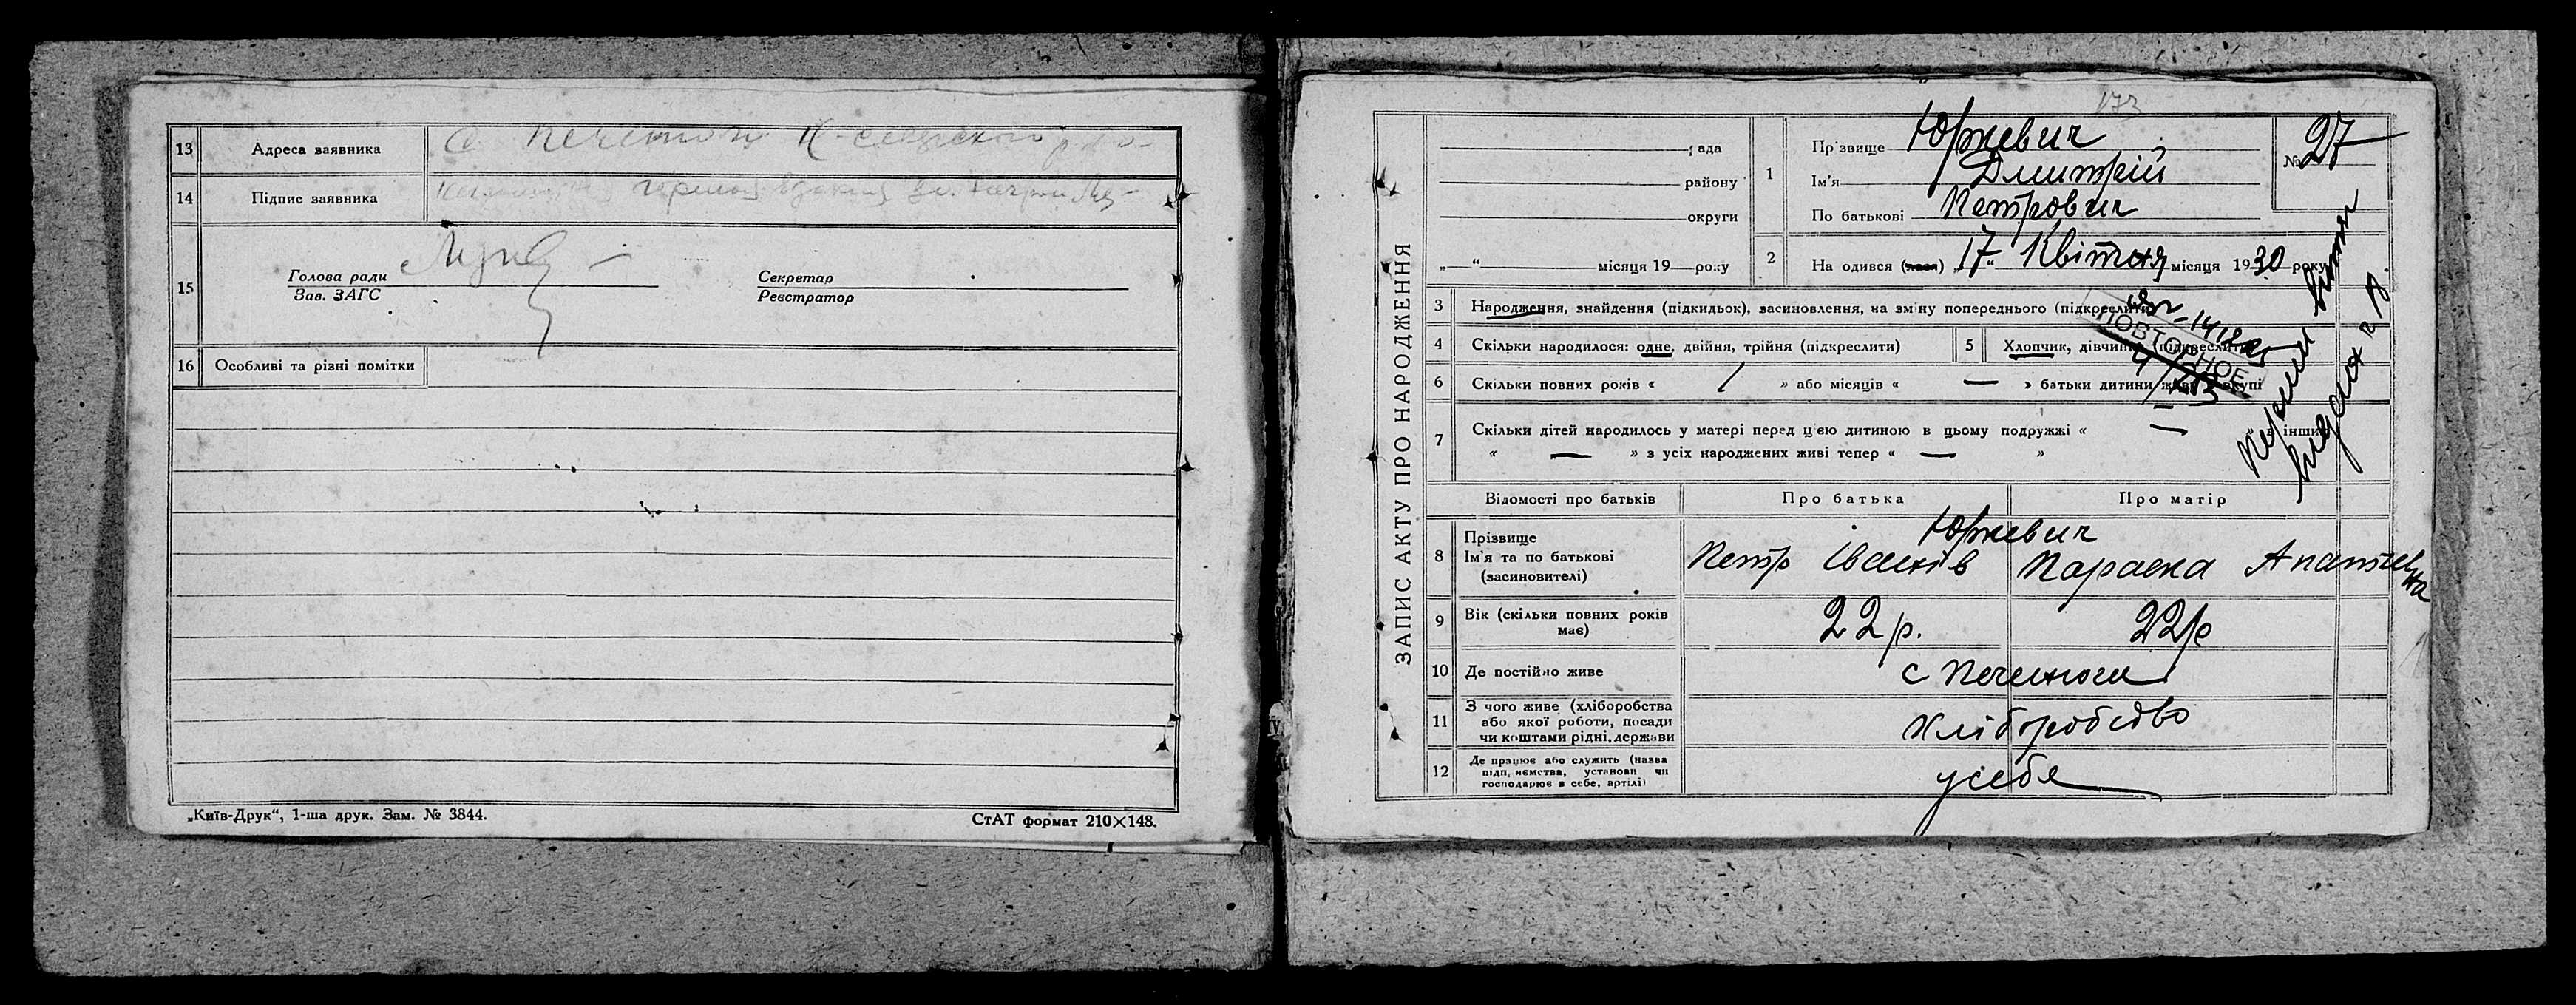 13 Адреса заявника с. Печеноги
14 Підпис заявника
15 Голова ради
Зав. ЗАГС
Секретар
Реєстратор
16 Особливі та різні помітки
„Київ-Друк“, 1-ша друк. Зам. № 3844.
СтАТ формат 210×148.
173
ЗАПИС АКТУ ПРО НАРОДЖЕННЯ
рада
району
округи
„ “ місяця 19 року
1 Прізвище Юркевич
Ім'я Дмитрій
По батькові Петрович
№ 27
2 На одився (лася) „17“ Квітня місяця 1930 року
3 Народження, знайдення (підкидьок), засиновлення, на зміну попереднього (підкреслити)
4 Скільки народилося: одне, двійня, трійня (підкреслити)
5 Хлопчик, дівчинка (підкреслити)
ПОВТОРНОЕ
6 Скільки повних років « 1 » або місяців « — » батьки дитини живуть вкупі
7 Скільки дітей народилось у матері перед цією дитиною в цьому подружжі « — » в інших
« — » з усіх народжених живі тепер « — »
Відомості про батьків Про батька Про матір
8 Прізвище
Ім'я та по батькові
(засиновителі)
Юркевич
Петр Іванів Параска
9 Вік (скільки повних років
має)
22 р. 22 р
10 Де постійно живе с Печеноги
11 З чого живе (хліборобства
або якої роботи, посади
чи коштами рідні, держави
Хліборобство
12 Де працює або служить (назва
підп, иємства, установи чи
господарює в себе, артілі)
усебе